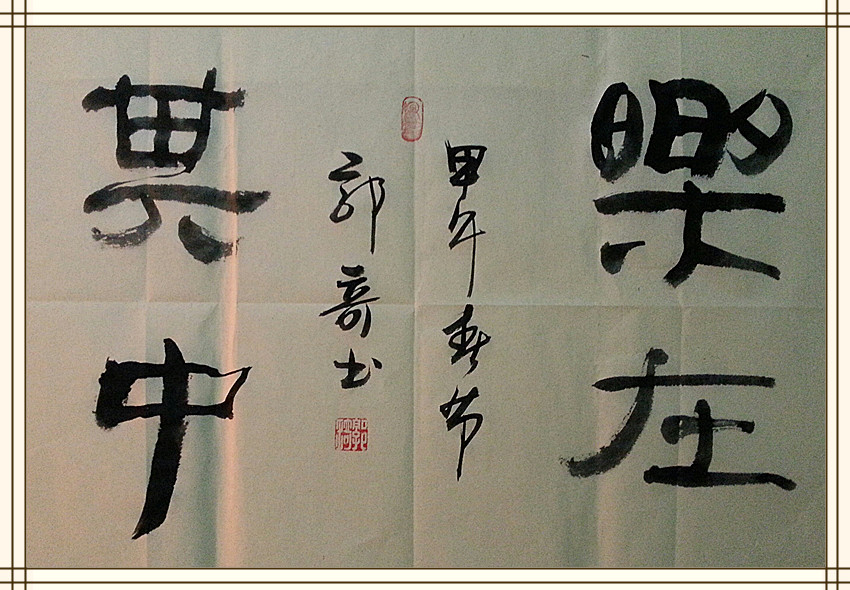 樂在
其中
甲午春节
郭竒书